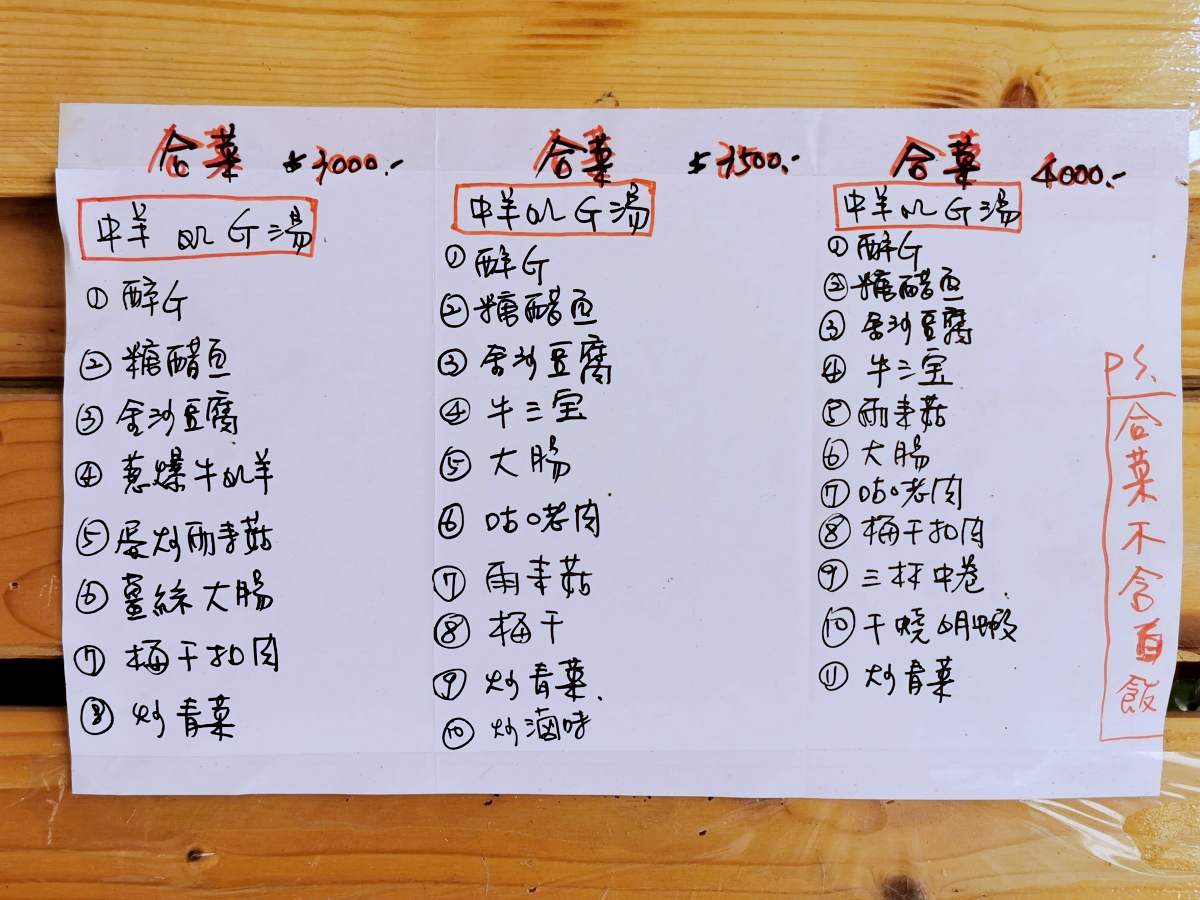 合菜 $3000.-
中羊 or G湯
① 醉G
② 糖醋魚
③ 金沙豆腐
④ 蔥爆牛or羊
⑤ 蛋炒雨來菇
⑥ 薑絲大腸
⑦ 梅干扣肉
⑧ 炒青菜
合菜 $3500.-
中羊 or G湯
① 醉G
② 糖醋魚
③ 金沙豆腐
④ 牛三宝
⑤ 大腸
⑥ 咕咾肉
⑦ 雨來菇
⑧ 梅干
⑨ 炒青菜
⑩ 炒滷味
合菜 4000.-
中羊 or G湯
① 醉G
② 糖醋魚
③ 金沙豆腐
④ 牛三宝
⑤ 雨來菇
⑥ 大腸
⑦ 咕咾肉
⑧ 梅干扣肉
⑨ 三杯中卷
⑩ 干燒明蝦
⑪ 炒青菜
PS.
合菜不含白飯